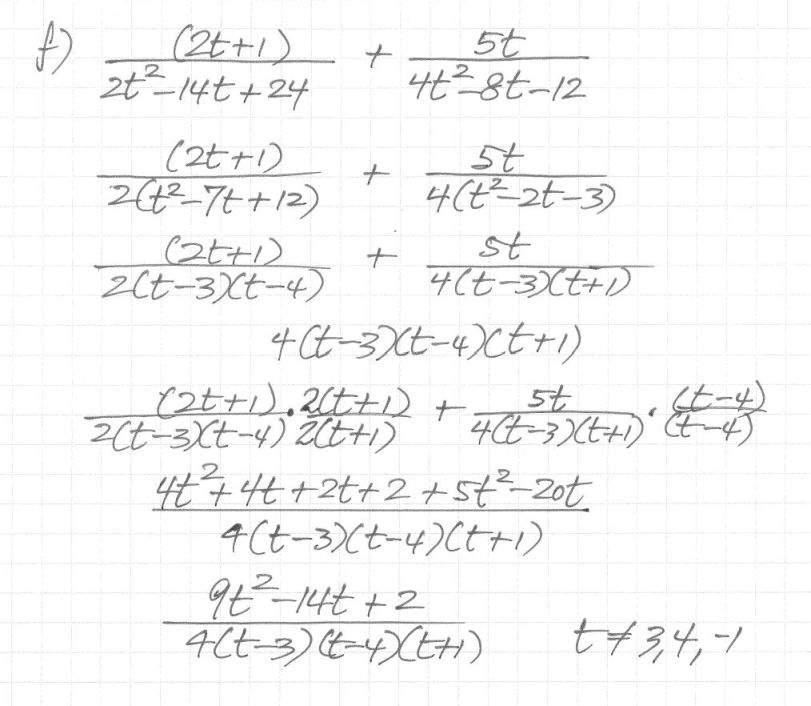 f) (2t+1)/(2t²-14t+24) + 5t/(4t²-8t-12)
(2t+1)/(2(t²-7t+12)) + 5t/(4(t²-2t-3))
(2t+1)/(2(t-3)(t-4)) + 5t/(4(t-3)(t+1))
4(t-3)(t-4)(t+1)
(2t+1)/(2(t-3)(t-4)) · 2(t+1)/(2(t+1)) + 5t/(4(t-3)(t+1)) · (t-4)/(t-4)
(4t²+4t+2t+2+5t²-20t)/(4(t-3)(t-4)(t+1))
(9t²-14t+2)/(4(t-3)(t-4)(t+1)) t≠3,4,-1